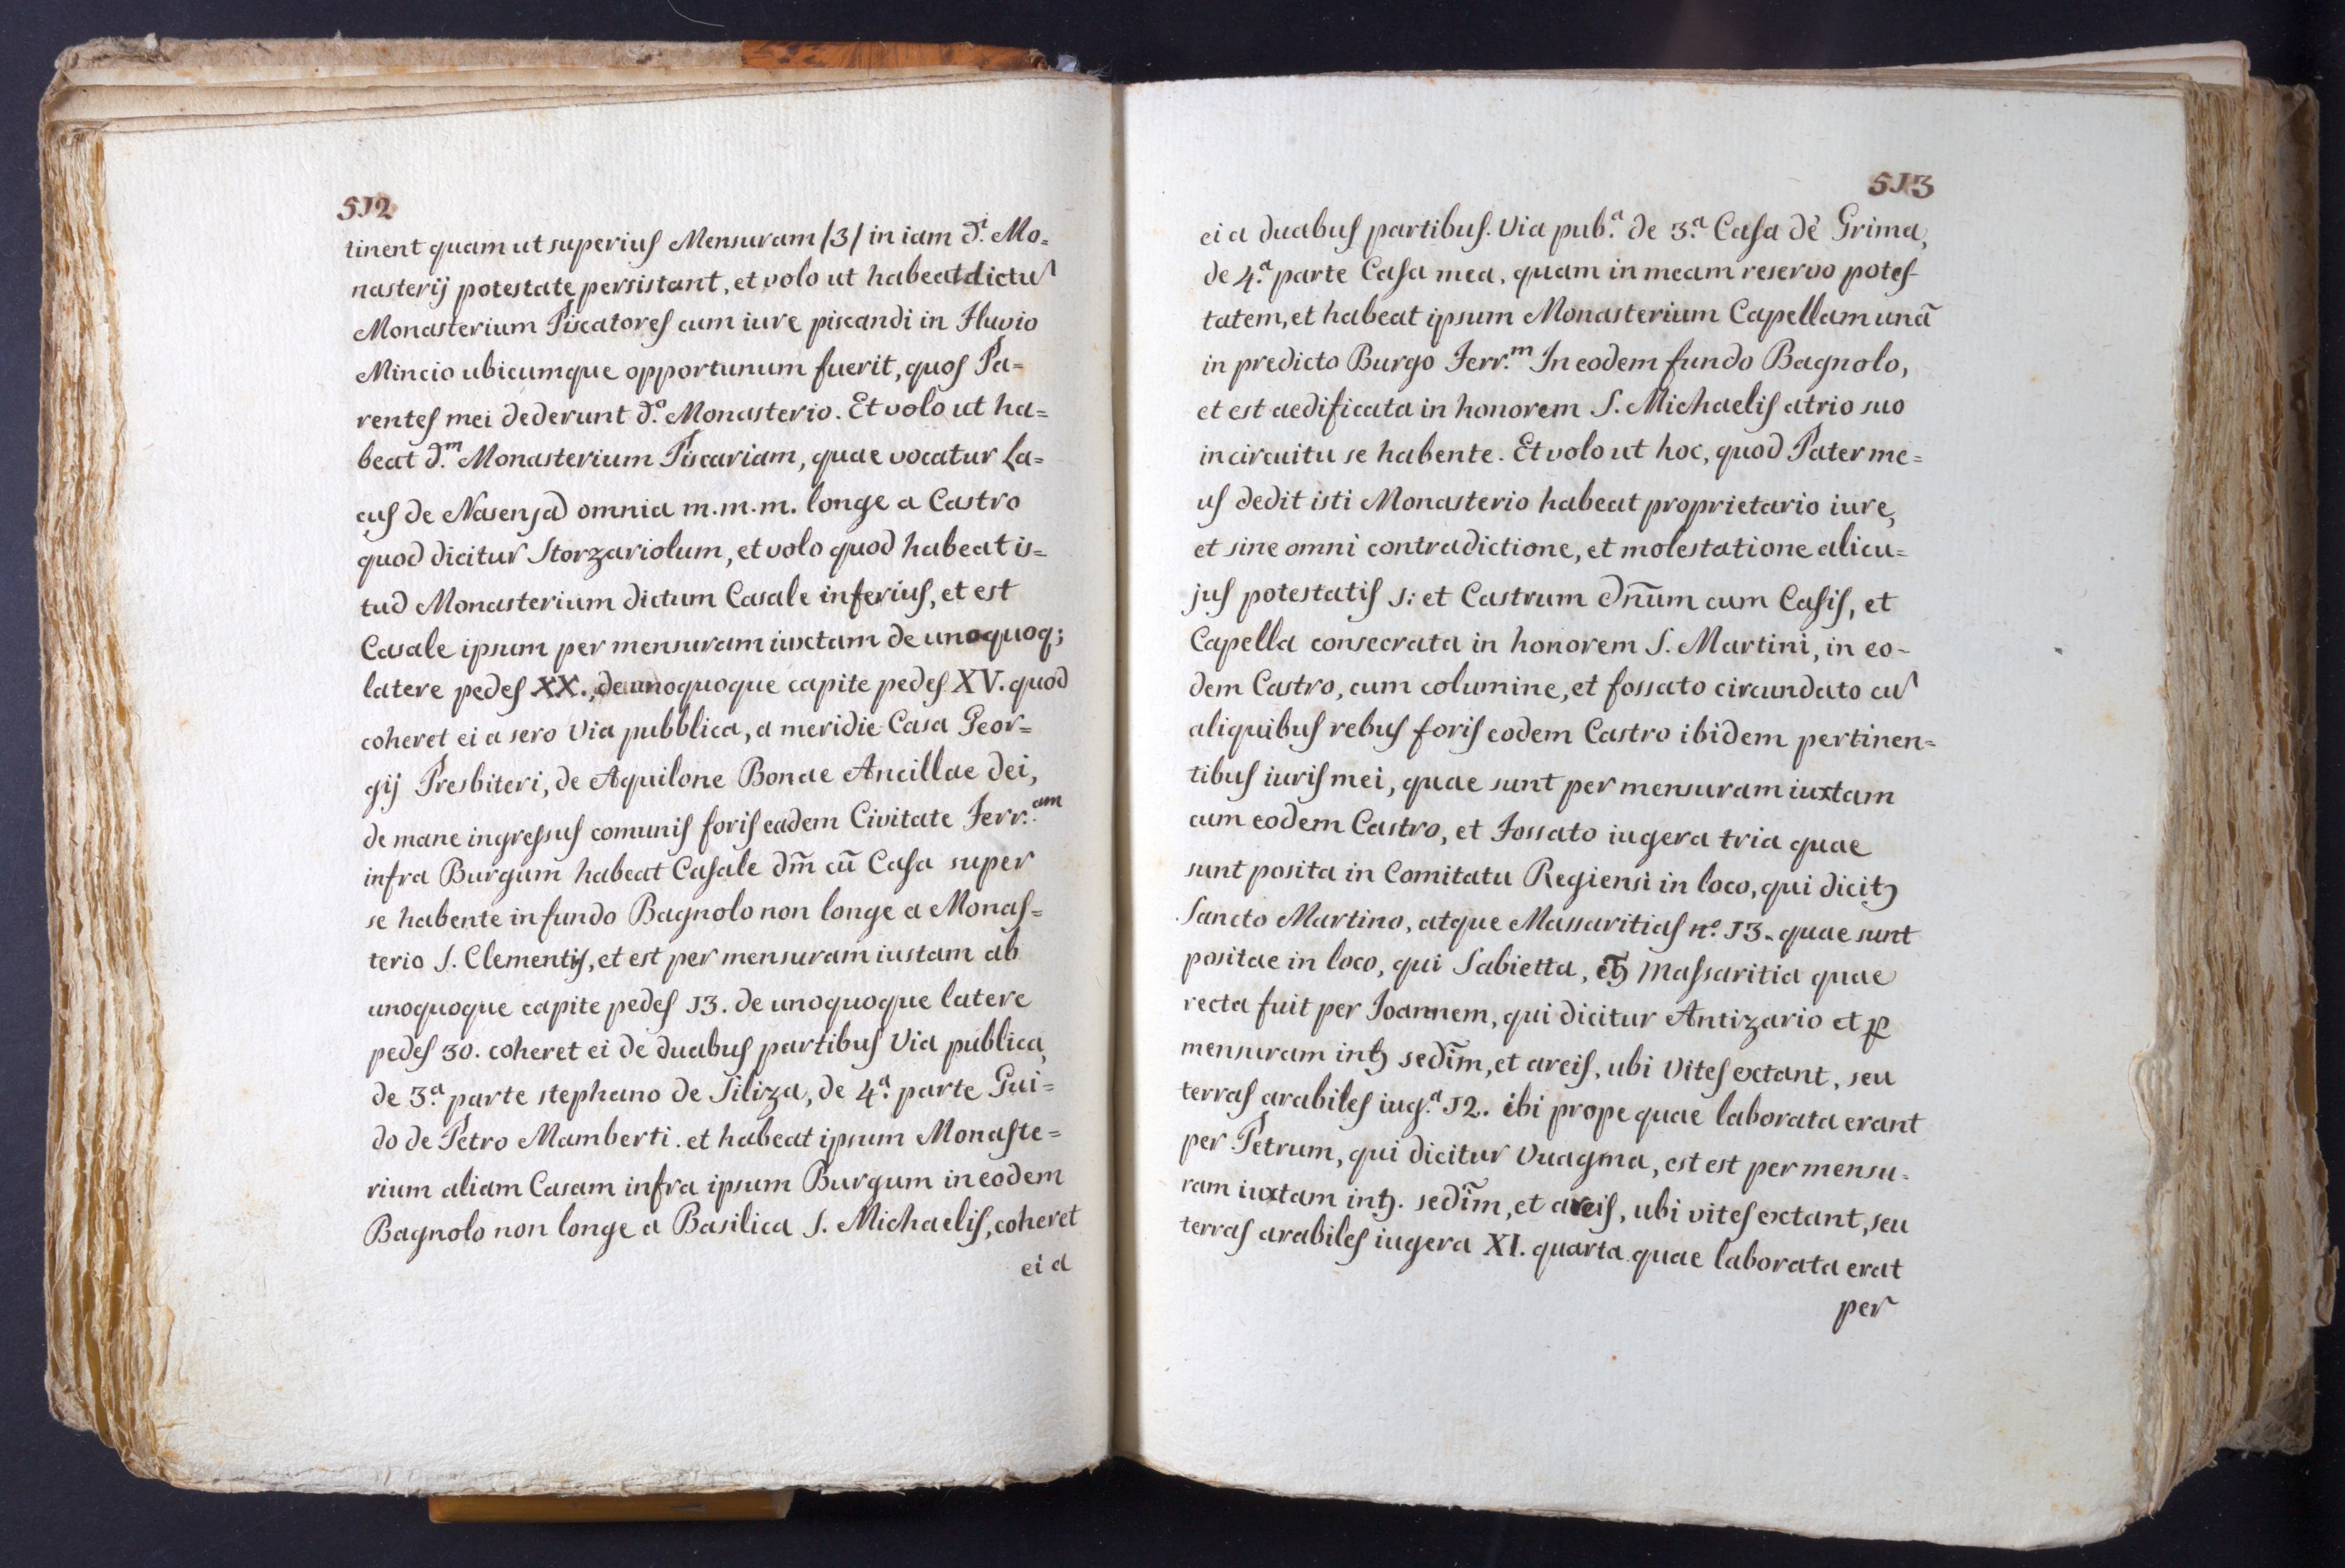 512
tinent quam ut superius Mensuram /3/ in iam d.i Mo=
nasterij potestate persistant, et volo ut habeat dictu
Monasterium Piscatores cum iure piscandi in Fluvio
Mincio ubicumque opportunum fuerit, quos Pa=
rentes mei dederunt d.o Monasterio. Et volo ut ha=
beat d.m Monasterium Piscariam, quae vocatur La=
cus de Nasenjad omnia m.m.m. longe a Castro
quod dicitur Storzariolum, et volo quod habeat is=
tud Monasterium dictum Casale inferius, et est
Casale ipsum per mensuram iuxtam de unoquoq;
latere pedes XX., de unoquoque capite pedes XV. quod
coheret ei a sero Via pubblica, a meridie Casa Geor=
gij Presbiteri, de Aquilone Bonae Ancillae dei,
de mane ingressus comunis foris eadem Civitate Ferr.am
infra Burgum habeat Casale dm̃ cũ Casa super
se habente in fundo Bagnolo non longe a Monas=
terio S. Clementis, et est per mensuram iustam ab
unoquoque capite pedes 13. de unoquoque latere
pedes 30. coheret ei de duabus partibus Via publica,
de 3.a parte stephano de Siliza, de 4.a parte Gui=
do de Petro Mamberti. et habeat ipsum Monaste=
rium aliam Casam infra ipsum Burgum in eodem
Bagnolo non longe a Basilica S. Michaelis, coheret
ei a
513
ei a duabus partibus. Via pub.a de 3.a Casa dè Grima,
de 4.a parte Casa mea, quam in meam reservo potes-
tatem, et habeat ipsum Monasterium Capellam unã
in predicto Burgo Ferr.m In eodem fundo Bagnolo,
et est aedificata in honorem S. Michaelis atrio suo
in circuitu se habente. Et volo ut hoc, quod Pater me=
us dedit isti Monasterio habeat proprietario iure,
et sine omni contradictione, et molestatione alicu=
jus potestatis s: et Castrum dnũm cum Casis, et
Capella consecrata in honorem S. Martini, in eo-
dem Castro, cum columine, et fossato circundato cu
aliquibus rebus foris eodem Castro ibidem pertinen=
tibus iuris mei, quae sunt per mensuram iuxtam
cum eodem Castro, et Fossato iugera tria quae
sunt posita in Comitatu Regiensi in loco, qui dicitꝫ
Sancto Martino, atque Massaritias n.o 13. quae sunt
positae in loco, qui Sabietta, Massaritia quae
recta fuit per Joannem, qui dicitur Antizario et ꝑ
mensuram intꝫ sedĩm, et areis, ubi Vites extant, seu
terras arabiles iug.a 12. ibi prope quae laborata erant
per Petrum, qui dicitur Vuagma, est est per mensu-
ram iuxtam intꝫ. sedĩm, et areis, ubi vites extant, seu
terras arabiles iugera XI. quarta quae laborata erat
per